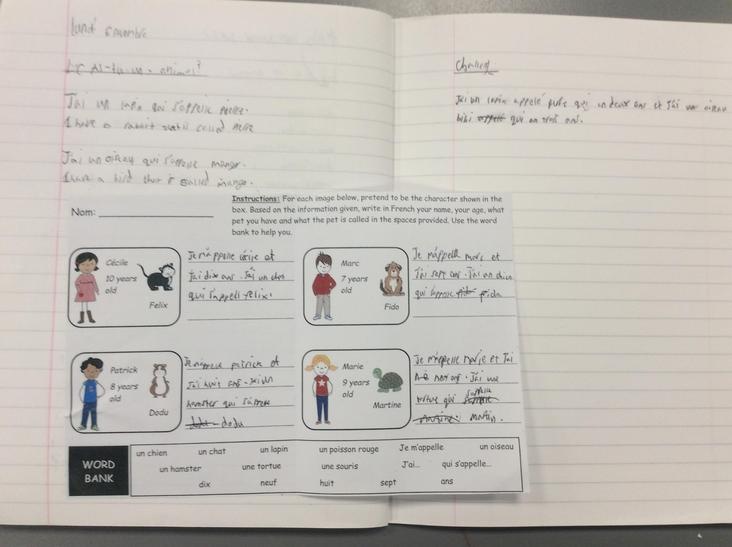 lundi
As-tu un animal?
J'ai un lapin qui s'appelle
I have a rabbit called
J'ai un oiseau qui s'appelle mango.
I have a bird that is called mango.
Challenge
J'ai un lapin appelé qui deux ans et J'ai un oiseau
kiki qui ans.
Nom:
Instructions: For each image below, pretend to be the character shown in the
box. Based on the information given, write in French your name, your age, what
pet you have and what the pet is called in the spaces provided. Use the word
bank to help you.
Cécile
10 years
old
Felix
Je m'appelle cécile et
J'ai dix ans. J'ai un
qui s'appell felix.
Marc
7 years
old
Fido
Je m'appelle marc et
J'ai sept ans. J'ai un chien
qui fido
Patrick
8 years
old
Dodu
Je m'appelle patrick et
J'ai huit ans. J'ai un
hamster qui
dodu
Marie
9 years
old
Martine
Je m'appelle marie et J'ai
neuf ans. J'ai une
tortue qui
martin.
WORD
BANK
un chien un chat un lapin un poisson rouge Je m'appelle un oiseau
un hamster une tortue une souris J'ai... qui s'appelle...
dix neuf huit sept ans